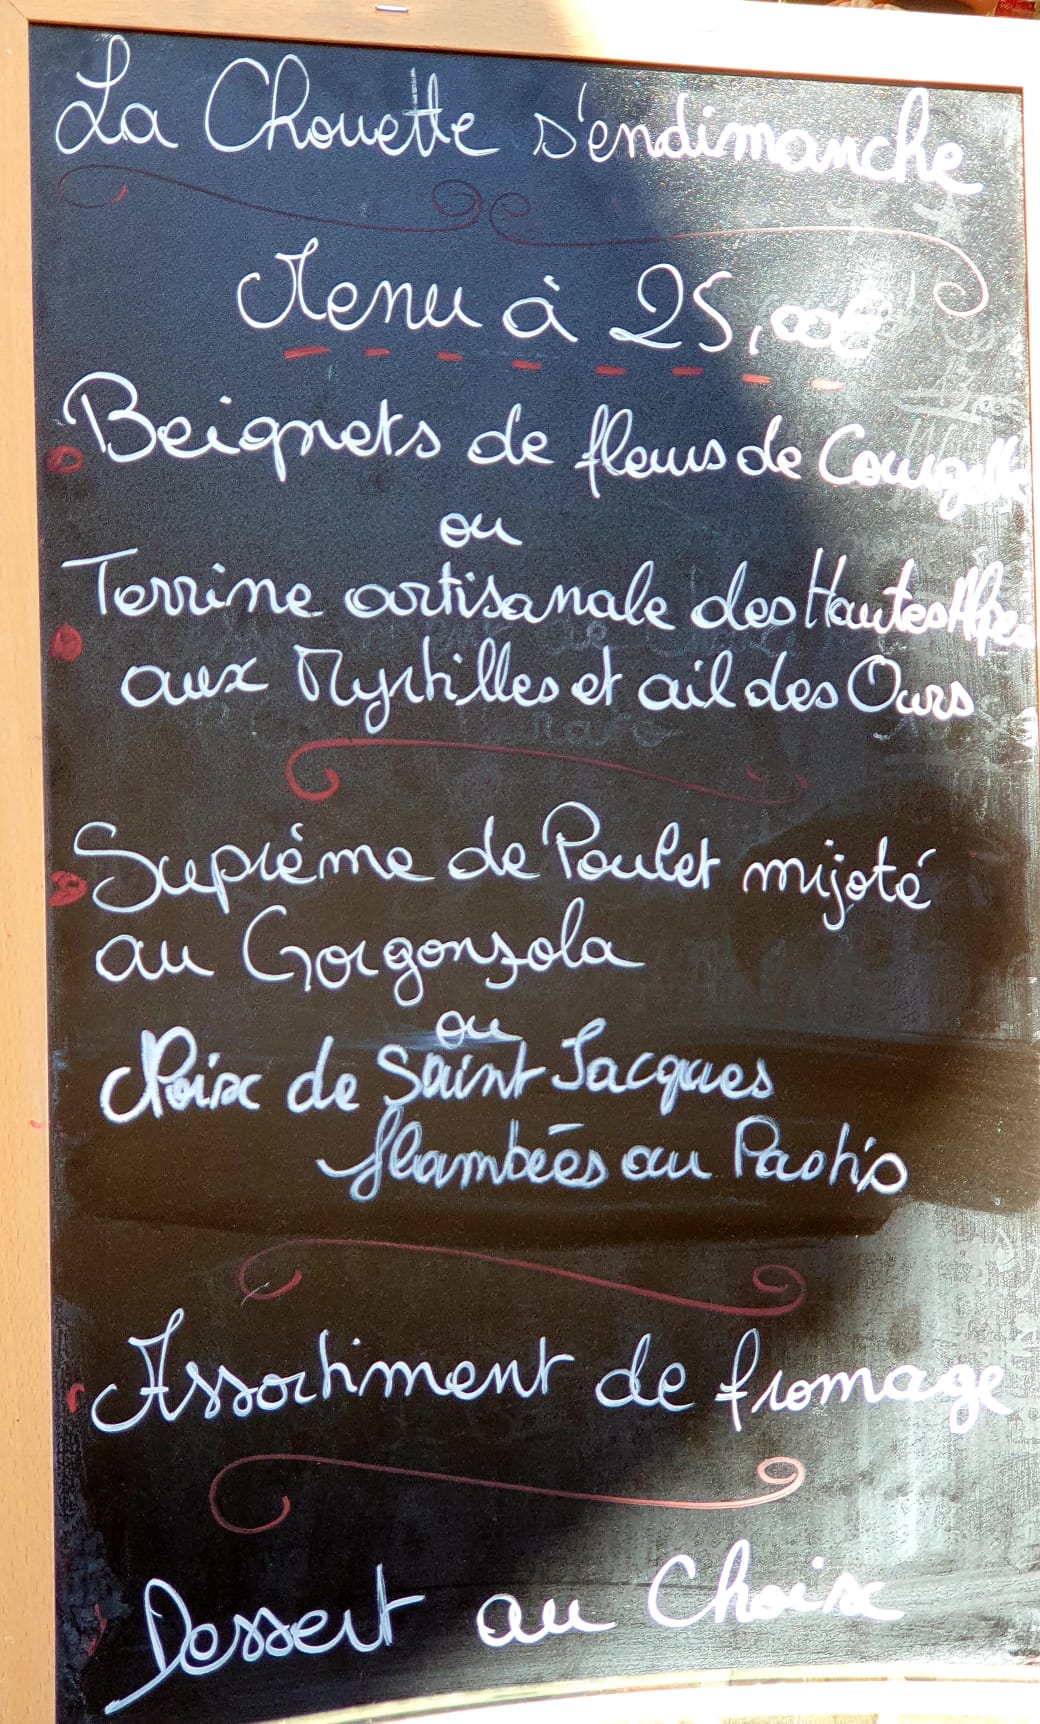 La Chouette s'endimanche
Menu à 25,00€
Beignets de fleurs de Courgette
ou
Terrine artisanale des Hautes Alpes
aux Myrtilles et ail des Ours
Suprême de Poulet mijoté
au Gorgonzola
ou
Noix de Saint Jacques
flambées au Pastis
Assortiment de fromage
Dessert au Choix